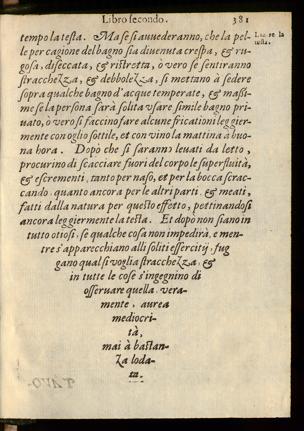 Libro secondo. 381
tempo la testa. Ma se si auuederanno, che la pel-
le per cagione del bagno sia diuenuta crespa, & ru-
gosa, diseccata, & ristretta, ò vero se sentiranno
stracchezza, & debbolezza, si mettano à sedere
sopra qualche bagno d'acque temperate, & massi-
me se la persona sarà solita vsare simile bagno pri-
uato, ò vero si faccino fare alcune fricationi leggier-
mente con oglio sottile, et con vino la mattina à buo-
na hora. Dopò che si saranno leuati da letto,
procurino di scacciare fuori del corpo le superfluità,
& escrementi, tanto per naso, et per la bocca scrac-
cando, quanto ancora per le altri parti, & meati,
fatti dalla natura per questo effetto, pettinandosi
ancora leggiermente la testa. Et dopò non siano in
tutto otiosi, se qualche cosa non impedirà, e men-
tre s'apparecchiano alli soliti essercitÿ, fug
gano qual si voglia stracchezza, &
in tutte le cose s'ingegnino di
osseruare quella vera-
mente, aurea
mediocri-
tà,
mai à bastan-
za loda-
ta.